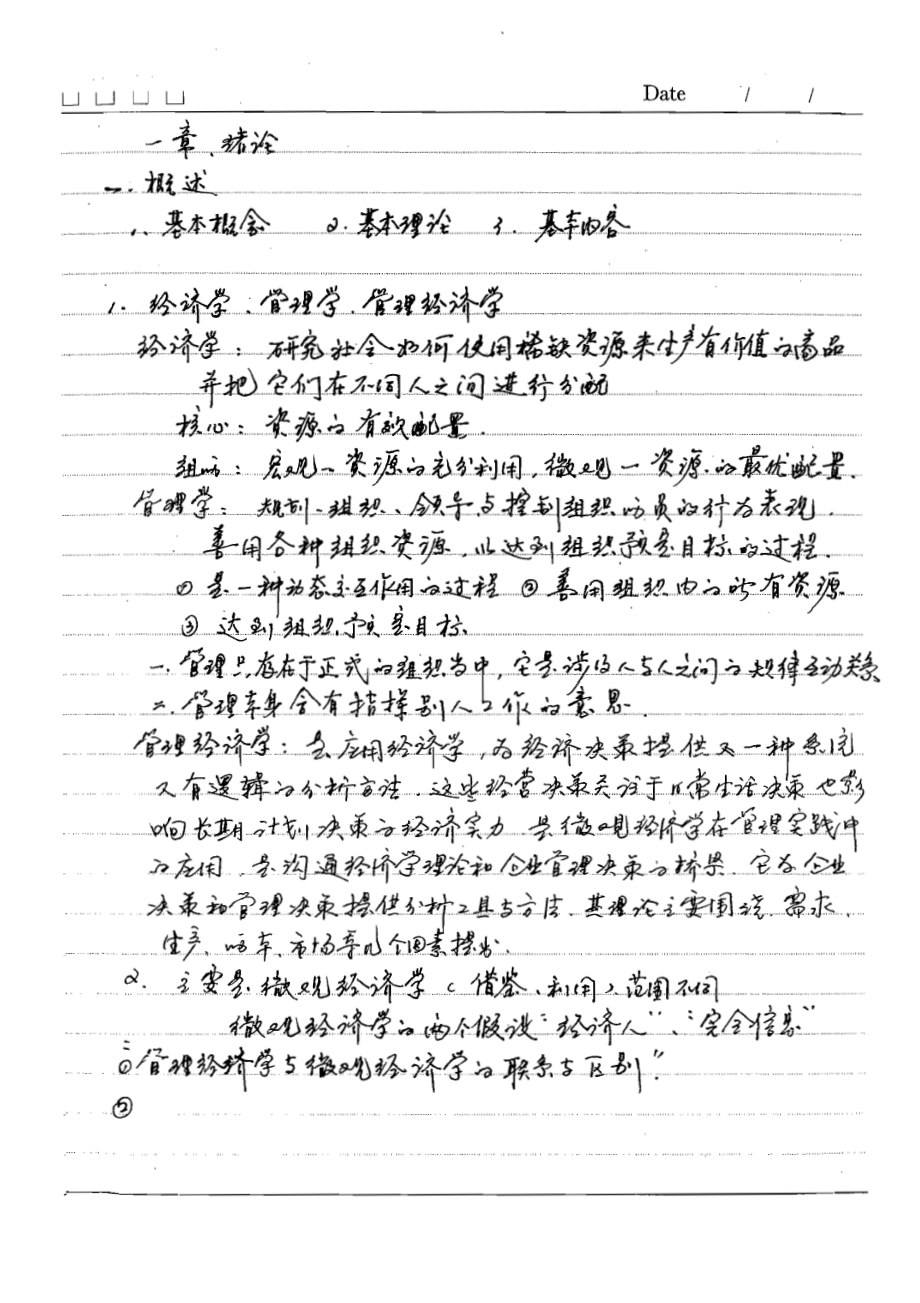 Date / /
一章、绪论
一. 概述
1、基本概念 2. 基本理论 3. 基本内容
1. 经济学、管理学、管理经济学
经济学： 研究社会如何使用稀缺资源来生产有价值的商品
并把它们在不同人之间进行分配
核心： 资源的有效配置.
组成： 宏观—资源的充分利用，微观—资源的最优配置.
管理学： 规划、组织、领导与控制组织成员的行为表现.
善用各种组织资源，以达到组织预定目标的过程.
① 是一种动态交互作用的过程 ② 善用组织内的所有资源
③ 达到组织预定目标
一. 管理只存在于正式的组织当中，它是涉及人与人之间的规律互动关系
二. 管理本身含有指挥别人工作的意思.
管理经济学： 是应用经济学，为经济决策提供了一种系统
又有逻辑的分析方法. 这些经营决策关注于日常生活决策也影
响长期计划决策的经济实力 是微观经济学在管理实践中
的应用. 是沟通经济学理论和企业管理决策的桥梁. 它为企业
决策和管理决策提供分析工具与方法. 其理论主要围绕. 需求、
生产、成本、市场等几个因素提出.
2. 主要是微观经济学（借鉴、利用）范围不同
微观经济学的两个假设“经济人”、“完全信息”
二
① 管理经济学与微观经济学的联系与区别”.
②